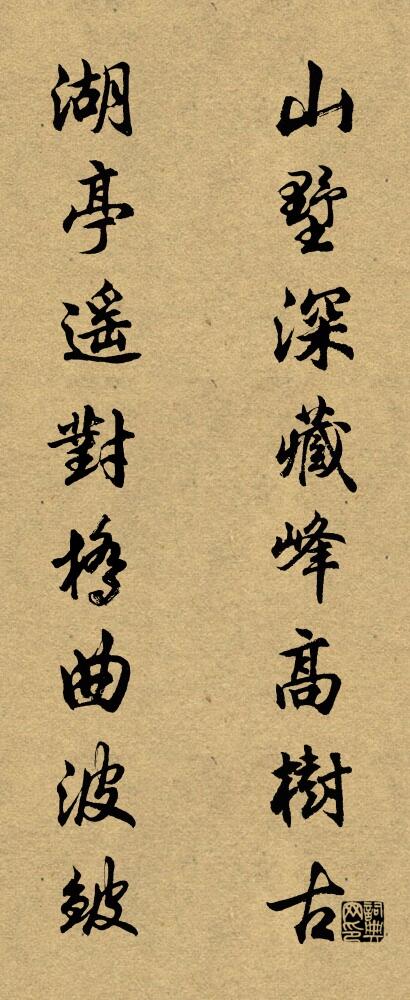 山墅深藏峰高樹古
湖亭遥對橋曲波皴
詞典网印